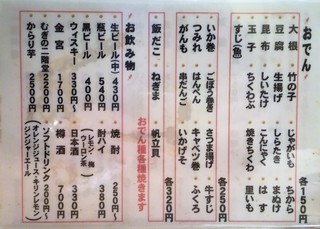 おでん
大根
豆腐
昆布
玉子
すじ(魚)
竹の子
生揚げ
しいたけ
ちくわぶ
じゃがいも
しらたき
こんにゃく
焼きちくわ
ちから
まぬけ
はす
里いも
各150円
いか巻
つみれ
がんも
ごぼう巻き
はんぺん
串だんご
さつま揚げ
キャベツ巻
いかげそ
牛すじ
ふくろ
各250円
飯だこ
ねぎま
帆立貝
各320円
おでん種各種焼きます
お飲み物
生ビール(中) 430円
瓶ビール 540円
黒ビール 400円
ウィスキー 330円~
金宮 1700円
むぎの二階堂 2200円
からり芋 2500円
焼酎 250円~
レモン・梅
ウーロン茶
酎ハイ 380円
日本酒 330円~
樽酒 700円
ソフトドリンク 200円~
オレンジジュース・キリンレモン
ジンジャーエール